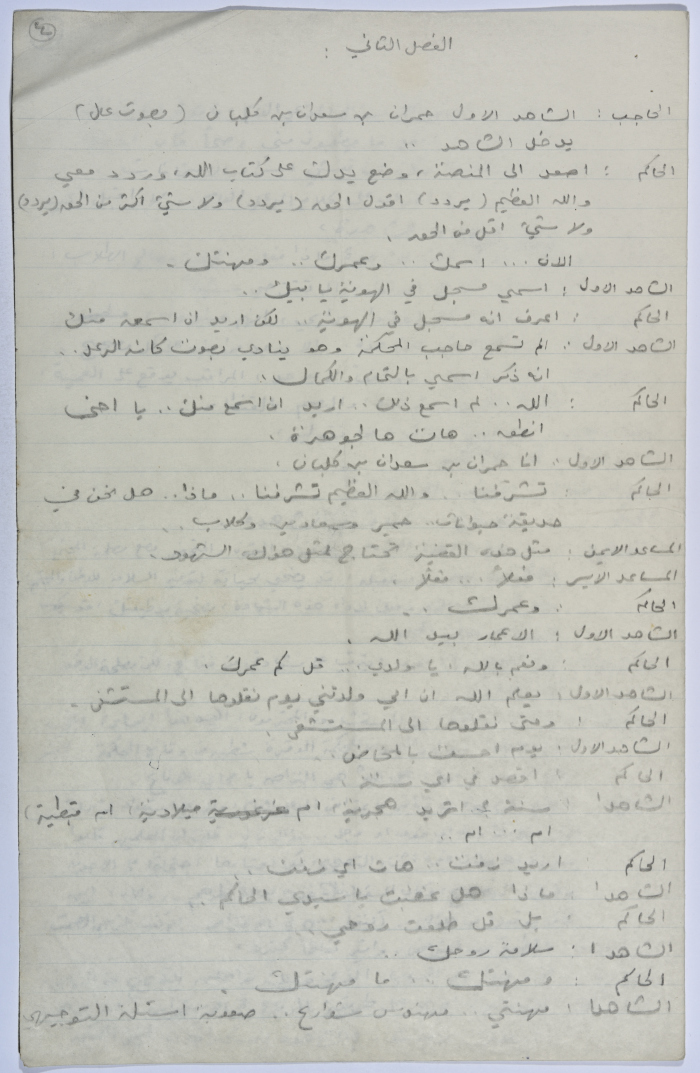 الفصل الثاني :
الحاجب : الشاهد الاول حمران بن سعدان بن كلبان ( بصوت عال )
يدخل الشاهد ..
الحاكم : اصعد الى المنصة ، وضع يدك على كتاب الله ، وردد معي
والله العظيم ( يردد ) اقول الحق ( يردد ) ولا شيئ اكثر من الحق ( يردد )
ولا شيئ اقل من الحق .
الان ... اسمك .. وعمرك .. ومهنتك .
الشاهد الاول : اسمي مسجل في الهوية يا بيك ..
الحاكم : اعرف انه مسجل في الهوية .. لكن اريد ان اسمعه منك
الشاهد الاول : الم تسمع حاجب المحكمة وهو ينادي بصوت كانه الرعد ..
انه ذكر اسمي بالتمام والكمال .
الحاكم : الله .. لم اسمع ذلك .. اريد ان اسمع منك .. يا اخي
انطق .. هات ها لجوهرة .
الشاهد الاول : انا حمران بن سعدان بن كلبان .
الحاكم : تشرفنا .. والله العظيم تشرفنا .. ماذا .. هل نحن في
حديقة حيوانات .. حمير وسعادين وكلاب ..
المساعد الايمن : مثل هذه القضية تحتاج لمثل هؤلاء الشهود .
المساعد الايسر : فعلاً .. فعلاً
الحاكم : وعمرك ..
الشاهد الاول : الاعمار بيد الله .
الحاكم : ونعم بالله يا ولدي .. قل كم عمرك .
الشاهد الاول : يعلم الله ان امي ولدتني يوم نقلوها الى المستشفى .
الحاكم : ومتى نقلوها الى المستشفى .
الشاهد الاول : يوم احست بالمخاض .
الحاكم : اقصد في اي سنة
الشاهد ١ : سنة اتريد هجرية ، ام ميلادية ، ام قبطية )
ام ... ام ..
الحاكم : اريد زفت .. هات اي زفت ..
الشاهد ١ : ماذا هل غضبت يا سيدي الحاكم ..
الحاكم : بل قل طلعت روحي
الشاهد ١ : سلامة روحك ..
الحاكم : ومهنتك .. ما مهنتك .
الشاهد ١ : مهنتي .. مهندس شوارع .. صعوبة اسئلة التوجيهي